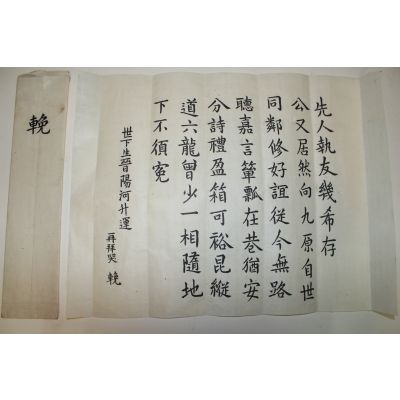 先人執友幾希存
公又居然向九原自世
同鄰修好誼從今無路
聽嘉言簞瓢在巷猶安
分詩禮盈箱可裕昆縱
道六龍曾少一相隨地
下不須寃
世下生晉陽河升運 再拜哭 輓
輓